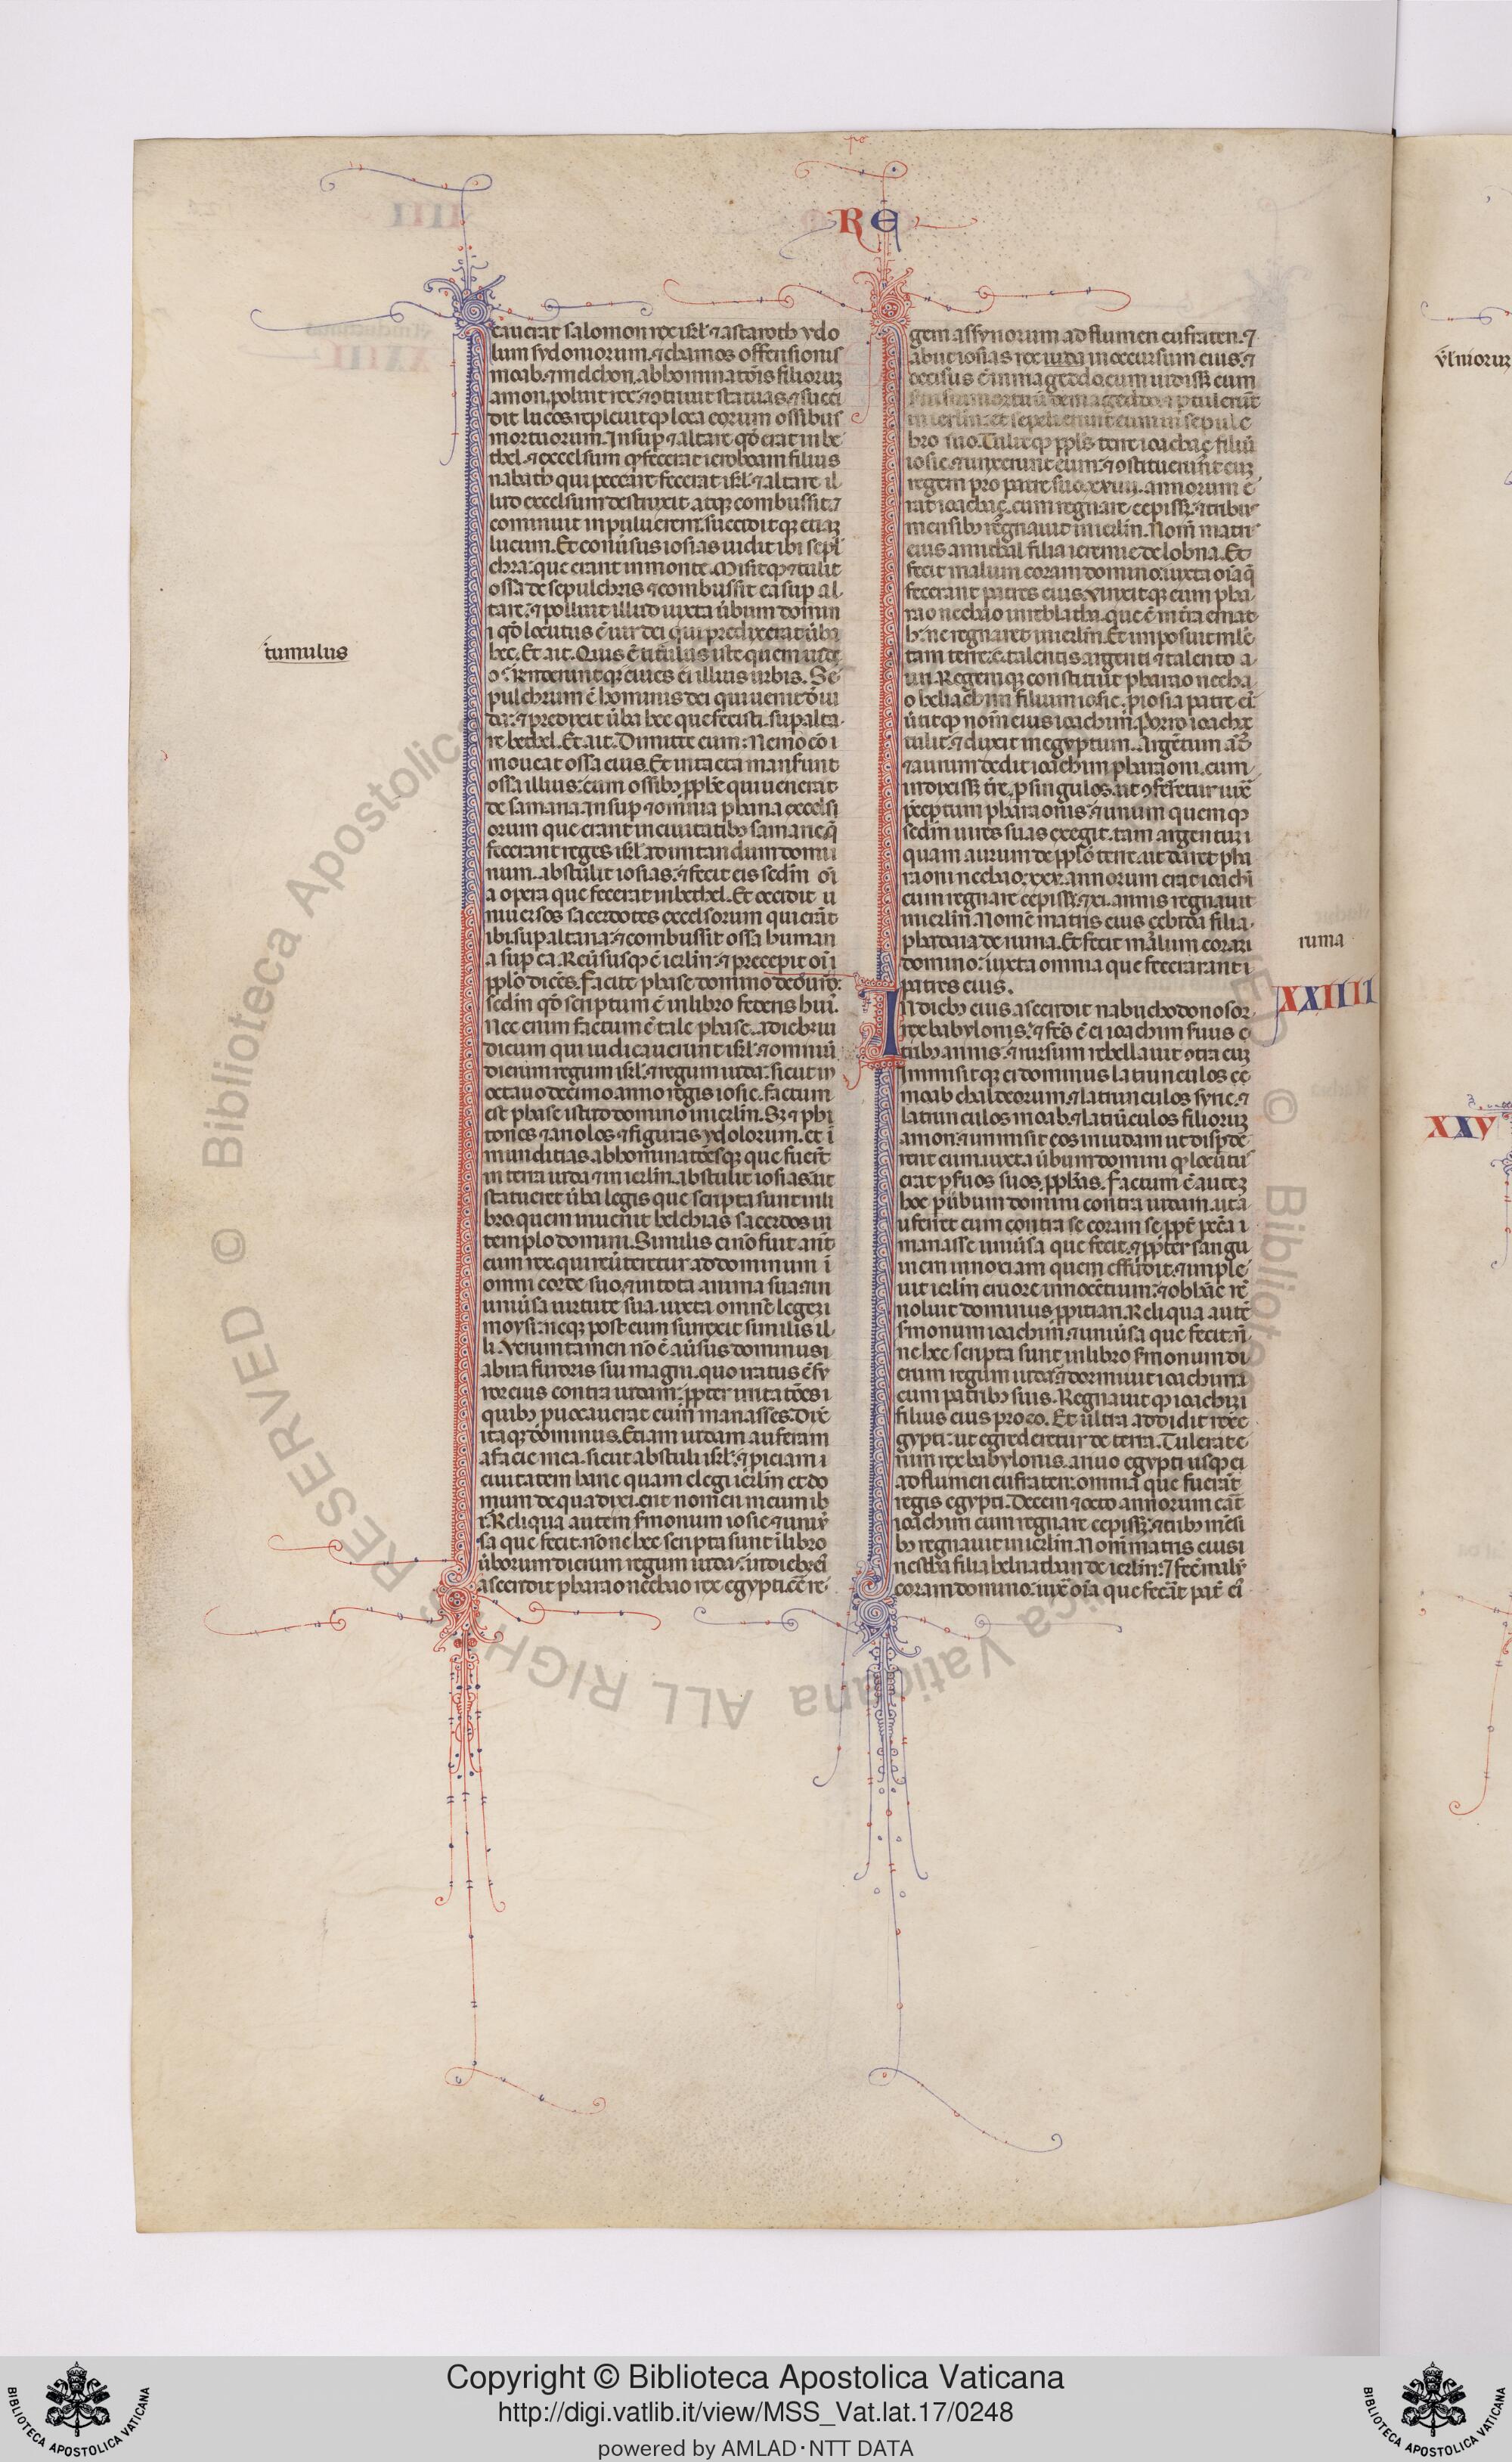 RE
cauerat salomon rex isrl̃.⁊ astaroth ydo
lum sydoniorum.⁊ chamos offensionis
moab.⁊ melchon.abbominatõis filioruꝫ
amon.polluit rex.⁊ ꝯtriuit statuas.⁊ succi
dit lucos repleuitqꝫ loca eorum ossibus
mortuorum.Insuꝑ ⁊ altare qđ erat in be
thel.⁊ excelsum qđ fecerat ieroboam filius
nabath qui peccare fecerat isrl̃.⁊ altare il
lud excelsum destruxit.atqꝫ combussit.⁊
cominuit in puluerem.succenditqꝫ etiaꝫ
lucum.Et conu̾sus iosias uidit ibi sepl̃
chra.que erant in monte.Misitqꝫ ⁊ tulit
ossa de sepulchris ⁊ combussit ea suꝑ al
tare.⁊ polluit illud iuxta u̾bum domin
i qđ locutus ẽ uir dei qui predixerat u̾ba
hec.Et ait.Quis ẽ titulus iste quem uide
o.Renderuntqꝫ ciues ei illius urbis. Se
pulchrum ẽ hominis dei qui uenit d̾ iu
da.⁊ predixit u̾ba hec que fecisti.suꝑ alta
re bethel.Et ait.Dimitte eum.Nemo cõ i
moueat ossa eius.Et intacta manserunt
ossa illius.cum ossibꝫ ꝓphe qui uenerat
de samaria.Insuꝑ ⁊ omnia phana excelsi
orum que erant in ciuitatibꝫ samarie q̃
fecerant reges isrl̃.ad irritandum domi
num.abstulit iosias.⁊ fecit eis sedm̃ oĩ
a opera que fecerat in bethel.Et occidit u
niuersos sacerdotes excelsorum qui erãt
ibi suꝑ altaria.⁊ combussit ossa human
a suꝑ ea.Reu̾susqꝫ ẽ ierlm̃.⁊ precepit oĩ i
ꝓplo dicẽs.facite phase domino deo uro.
sedm̃ qđ scriptum ẽ in libro federis hui.
Nec enim factum ẽ tale phase.a diebꝫ iu
dicum qui iudicauerunt isrl̃.⁊ omniũ
dierum regum isrl̃.⁊ regum iuda.sicut in
octauodecimo anno regis iosie.factum
est phase istud domino in ierlm̃.Sꝫ ⁊ phi
tones ⁊ ariolos.⁊ figuras ydolorum.et i
munditias.abbominatõesqꝫ que fuerũt
in terra iuda ⁊ in ierlm̃.abstulit iosias.ut
statueret u̾ba legis que scripta sunt in li
bro.quem inuenit helchias sacerdos in
templo domini.Similis ei nõ fuit ante
eum rex.qui reu̾teretur ad dominum i
omni corde suo.⁊ in tota anima sua.⁊ in
uniu̾sa uirtute sua.iuxta omnẽ legem
moysi.neqꝫ post eum surrexit similis il
li.Verumtamen nõ ẽ au̾sus dominus i
ab ira furoris sui magni.quo iratus ẽ fu
ror eius contra iudam.ꝓpter irritatões i
quibꝫ prouocauerat eum manasses.Dix̃
itaqꝫ dominus.Etiam iudam auferam
a facie mea.sicut abstuli isrl̃.⁊ ꝓiciam i
ciuitatem hanc quam elegi ierlm̃ et do
mum de qua dixi.erit nomen meum ib
i.Reliqua autem s̾monum iosie.⁊ uniu̾
sa que fecit.nõne hec scripta sunt ĩ libro
u̾borum dierum regum iuda.in diebꝫ eĩ
ascendit pharao nechao rex egypti.cõ re
gem assyriorum ad flumen eufraten.⁊
abiit iosias rex iuda in occursum eius.⁊
occisus ẽ in mageddo.cum uidissꝫ eum
in ierlm̃.et sepelierunt eum in sepulc
bro suo.Tulitqꝫ ꝓpls terre ioachaz filiũ
iosie.⁊ unxerunt eum.⁊ ꝯstituerunt euꝫ
regem pro patre suo.xxiii.annorum e
rat ioachaz.cum regnare cepissꝫ.⁊ tribꝫ
mensibꝫ regnauit in ierlm̃.Nom̃ matri
eius amithal filia ieremie de lobna.Et
fecit malum coram domino.iuxta oĩa q̃
fecerant patres eius.vinxitqꝫ eum pha
rao nechao in reblatha.que ẽ in tr̃a emat
h.ne regnaret in ierlm̃.Et imposuit mlc
tam terre.c̃.talentis argenti.⁊ talento a
uri.Regemqꝫ constituit pharao necha
o heliachim filium iosie.ꝓ iosia patre eĩ
u̾titqꝫ nom̃ eius ioachim.Porro ioachaz
tulit.⁊ duxit in egyptum.Argẽtum aũt
⁊ aurum dedit ioachim pharaoni.cum
indixissꝫ tr̃e.ꝑ singulos.ut ꝯferetur iux̃
p̾ceptum pharaonis.⁊ unumquemqꝫ
sedm̃ uires suas exegit.tam argentum
quam aurum de ꝓplo terre.ut daret pha
raoni nechao.xxv.annorum erat ioachĩ
cum regnare cepissꝫ.⁊ xi.annis regnauit
in ierlm̃.Nom̃e matris eius cebida filia
phadaia de ruma.Et fecit malum coram
domino.iuxta omnia que fecerarant i
patres eius.
In diebꝫ eius ascendit nabuchodonosor
rex babylonis.⁊ fc̃s ẽ ei ioachim s̾uus t
ribꝫ annis.⁊ rursum rebellauit ꝯtra euꝫ
Immisitqꝫ ei dominus latrunculos cẽ
moab chaldeorum.⁊ latrunculos syrie.⁊
latrunculos moab.⁊ latrũculos filioruꝫ
amon.⁊ immisit eos in iudam ut disꝑde
rent eum.iuxta u̾bum domini qđ locutu
erat ꝑ s̾uos suos ꝓphas.factum ẽ auteꝫ
hoc ꝑ u̾bum domini contra iudam.ut a
uferret eum contra se coram se ꝓpt̾ pccã i
manasse uniu̾sa que fecit.⁊ ꝓpter sangu
inem innoxiam quem effudit.⁊ imple
uit ierlm̃ cruore innocẽtium.⁊ ob hãc rẽ
noluit dominus ꝓpitiari.Reliqua autẽ
s̾monum ioachim.⁊ uniu̾sa que fecit.nõ
ne hec scripta sunt in libro s̾monum di
erum regum iuda.⁊ dormiuit ioachim i
cum patribꝫ suis.Regnauitqꝫ ioachim i
filius eius pro eo.Et ultra addidit rex e
gypti.ut egrederetur de terra.Tulerat e
nim rex babylonis.a riuo egypti usqꝫ ei
ad flumen eufraten.omnia que fuerãt
regis egypti.Decem ⁊ octo annorum erat
ioachim cum regnare cepissꝫ.⁊ tribꝫ mẽsi
bꝫ regnauit in ierlm̃.Nom̃ matris eius i
nestha filia helnathan de ierlm̃.⁊ fecit malũ
coram domino.iux̃ oĩa que fecãt pat̃ eĩ
tumulus
ruma
XXIIII
XXV
Copyright © Biblioteca Apostolica Vaticana
http://digi.vatlib.it/view/MSS_Vat.lat.17/0248
powered by AMLAD·NTT DATA
BIBLIOTECA APOSTOLICA VATICANA
BIBLIOTECA APOSTOLICA VATICANA
© Biblioteca Apostolica Vaticana ALL RIGHTS RESERVED